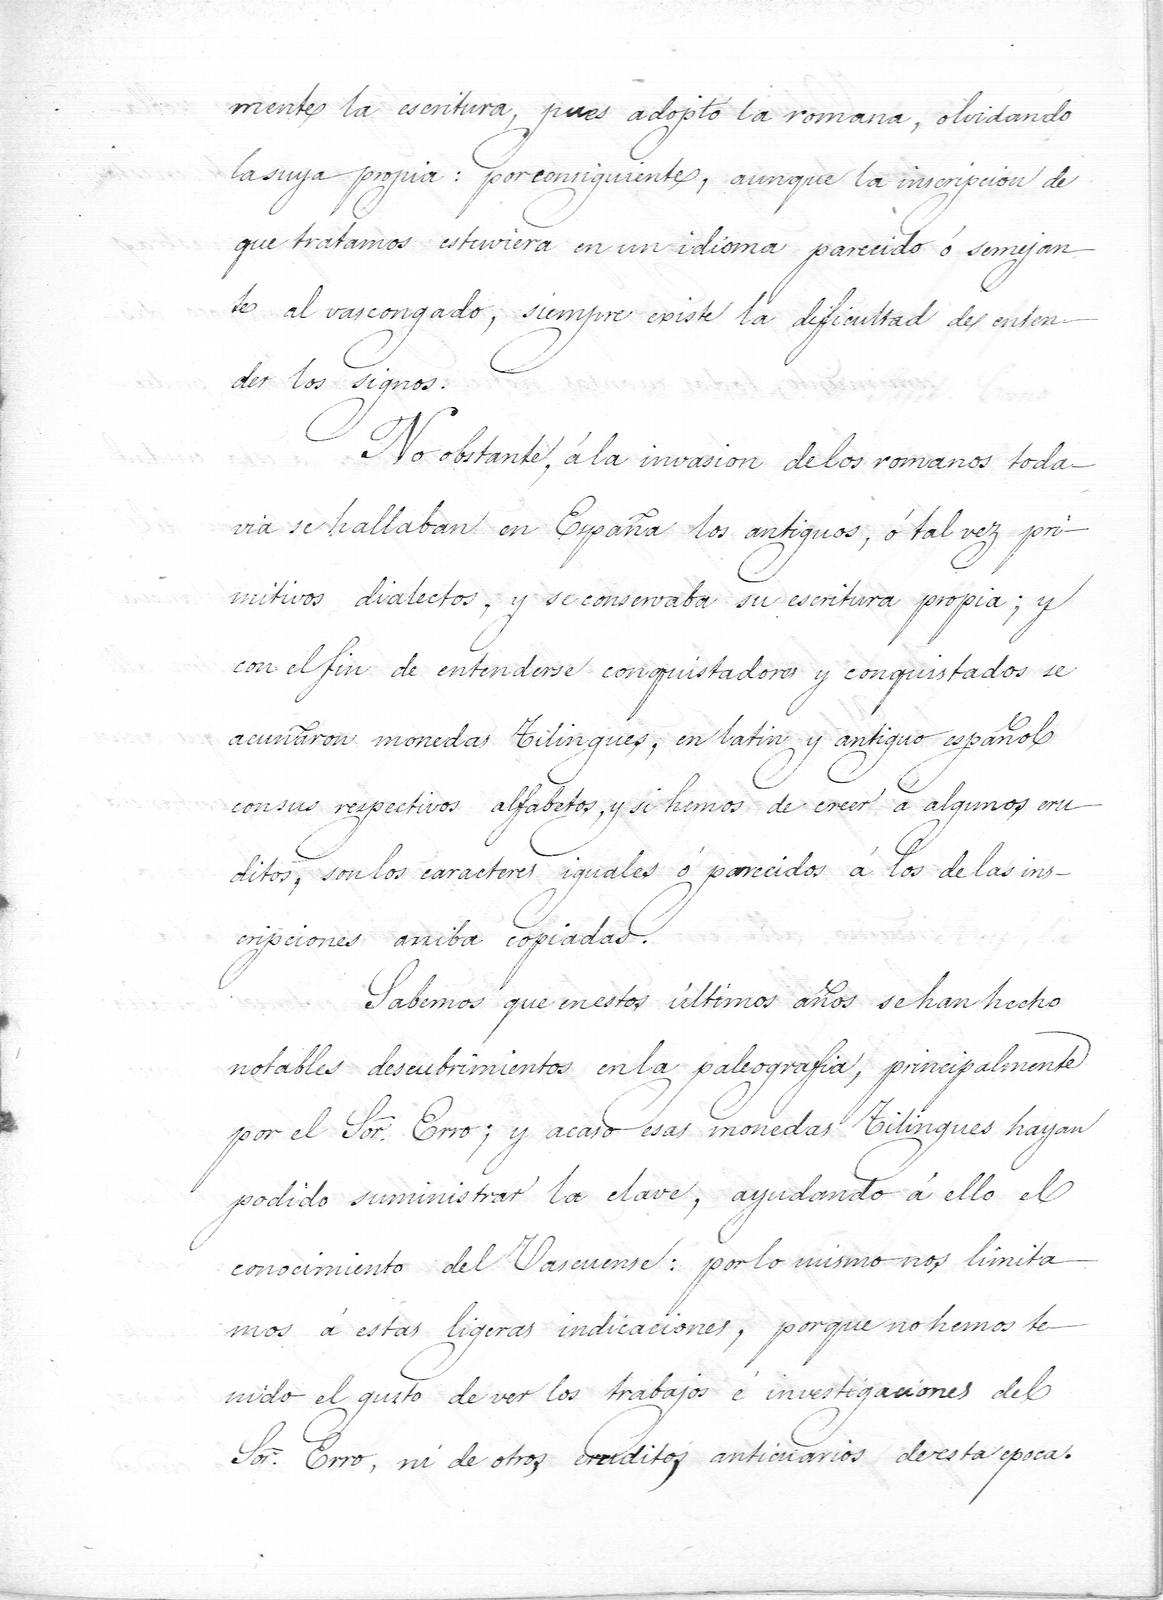 mente la escritura, pues adoptó la romana, olvidando
la suya propia: por consiguiente, aunque la inscripcion de
que tratamos estuviera en un idioma parecido ó semejan-
te al vascongado, siempre existe la dificultad de enten-
der los signos.
No obstante, á la invasion de los romanos toda-
via se hallaban en España los antiguos, ó tal vez pri-
mitivos dialectos, y se conservaba su escritura propia; y
con el fin de entenderse conquistadores y conquistados se
acuñaron monedas Bilingues, en latin y antiguo español
con sus respectivos alfabetos, y si hemos de creer á algunos eru-
ditos, son los caracteres iguales ó parecidos á los de las ins-
cripciones arriba copiadas.
Sabemos que en estos últimos años se han hecho
notables descubrimientos en la paleografia, principalmente
por el Sor. Erro; y acaso esas monedas Bilingues hayan
podido suministrar la clave, ayudando á ello el
conocimiento del Vascuense: por lo mismo nos limita-
mos á estas ligeras indicaciones, porque no hemos te-
nido el gusto de ver los trabajos é investigaciones del
Sor. Erro, ni de otros eruditos anticuarios de esta epoca.